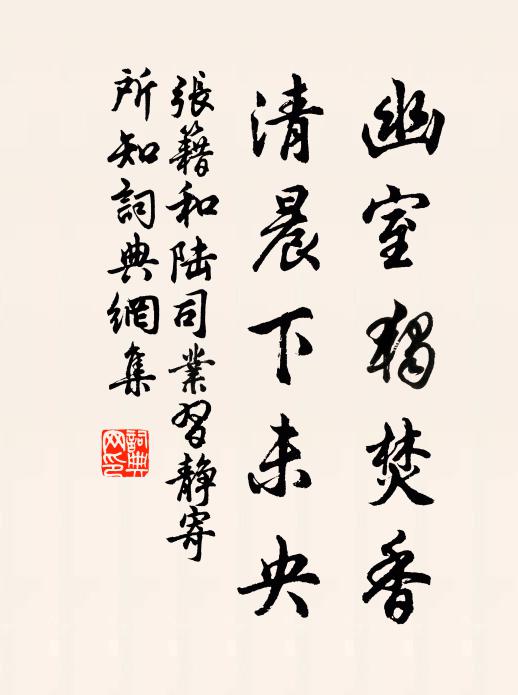 幽室獨焚香
清晨下未央
張籍和陆司業習靜寄
所知詞典網集
詞典
网印